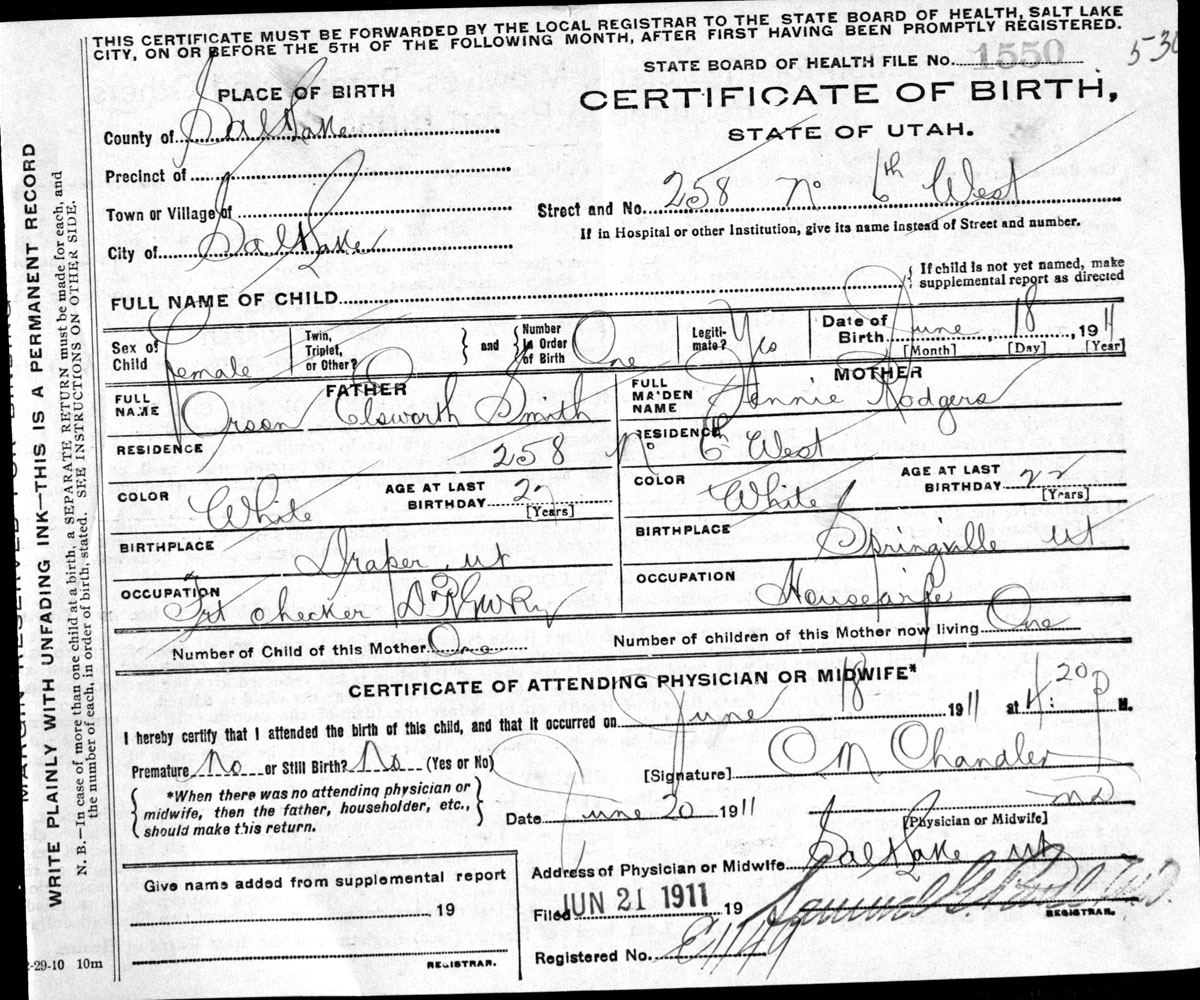 THIS CERTIFICATE MUST BE FORWARDED BY THE LOCAL REGISTRAR TO THE STATE BOARD OF HEALTH, SALT LAKE
CITY, ON OR BEFORE THE 5TH OF THE FOLLOWING MONTH, AFTER FIRST HAVING BEEN PROMPTLY REGISTERED.
STATE BOARD OF HEALTH FILE No. 1550
PLACE OF BIRTH
CERTIFICATE OF BIRTH,
STATE OF UTAH.
County of Salt Lake
Precinct of
Town or Village of
Street and No. 258 No 6th West
City of Salt Lake
If in Hospital or other Institution, give its name instead of Street and number.
FULL NAME OF CHILD
If child is not yet named, make
supplemental report as directed
Sex of
Child Female
Twin,
Triplet,
or Other?
and
Number
in Order
of Birth One
Legiti-
mate? Yes
Date of
Birth June 18, 1911
[Month] [Day] [Year]
FATHER
FULL
NAME Orson Elsworth Smith
MOTHER
FULL
MAIDEN
NAME Jennie Rodgers
RESIDENCE 258 No
RESIDENCE 6th West
COLOR White
AGE AT LAST
BIRTHDAY
[Years]
COLOR White
AGE AT LAST
BIRTHDAY 22
[Years]
BIRTHPLACE Draper, ut
BIRTHPLACE Springville ut
OCCUPATION Frt checker D&RGWRy
OCCUPATION Housewife
Number of Child of this Mother One
Number of children of this Mother now living One
CERTIFICATE OF ATTENDING PHYSICIAN OR MIDWIFE*
I hereby certify that I attended the birth of this child, and that it occurred on June 18 1911 at 4:20 P M.
Premature No or Still Birth? No (Yes or No)
*When there was no attending physician or
midwife, then the father, householder, etc.,
should make this return.
[Signature] O M Chandler
Date June 20 1911
MD
[Physician or Midwife]
Address of Physician or Midwife Salt Lake ut
Give name added from supplemental report
19
REGISTRAR.
Filed JUN 21 1911 19
REGISTRAR.
Registered No.
-29-10 10m
WRITE PLAINLY WITH UNFADING INK—THIS IS A PERMANENT RECORD
N. B.—In case of more than one child at a birth, a SEPARATE RETURN must be made for each, and
the number of each, in order of birth, stated. SEE INSTRUCTIONS ON OTHER SIDE.